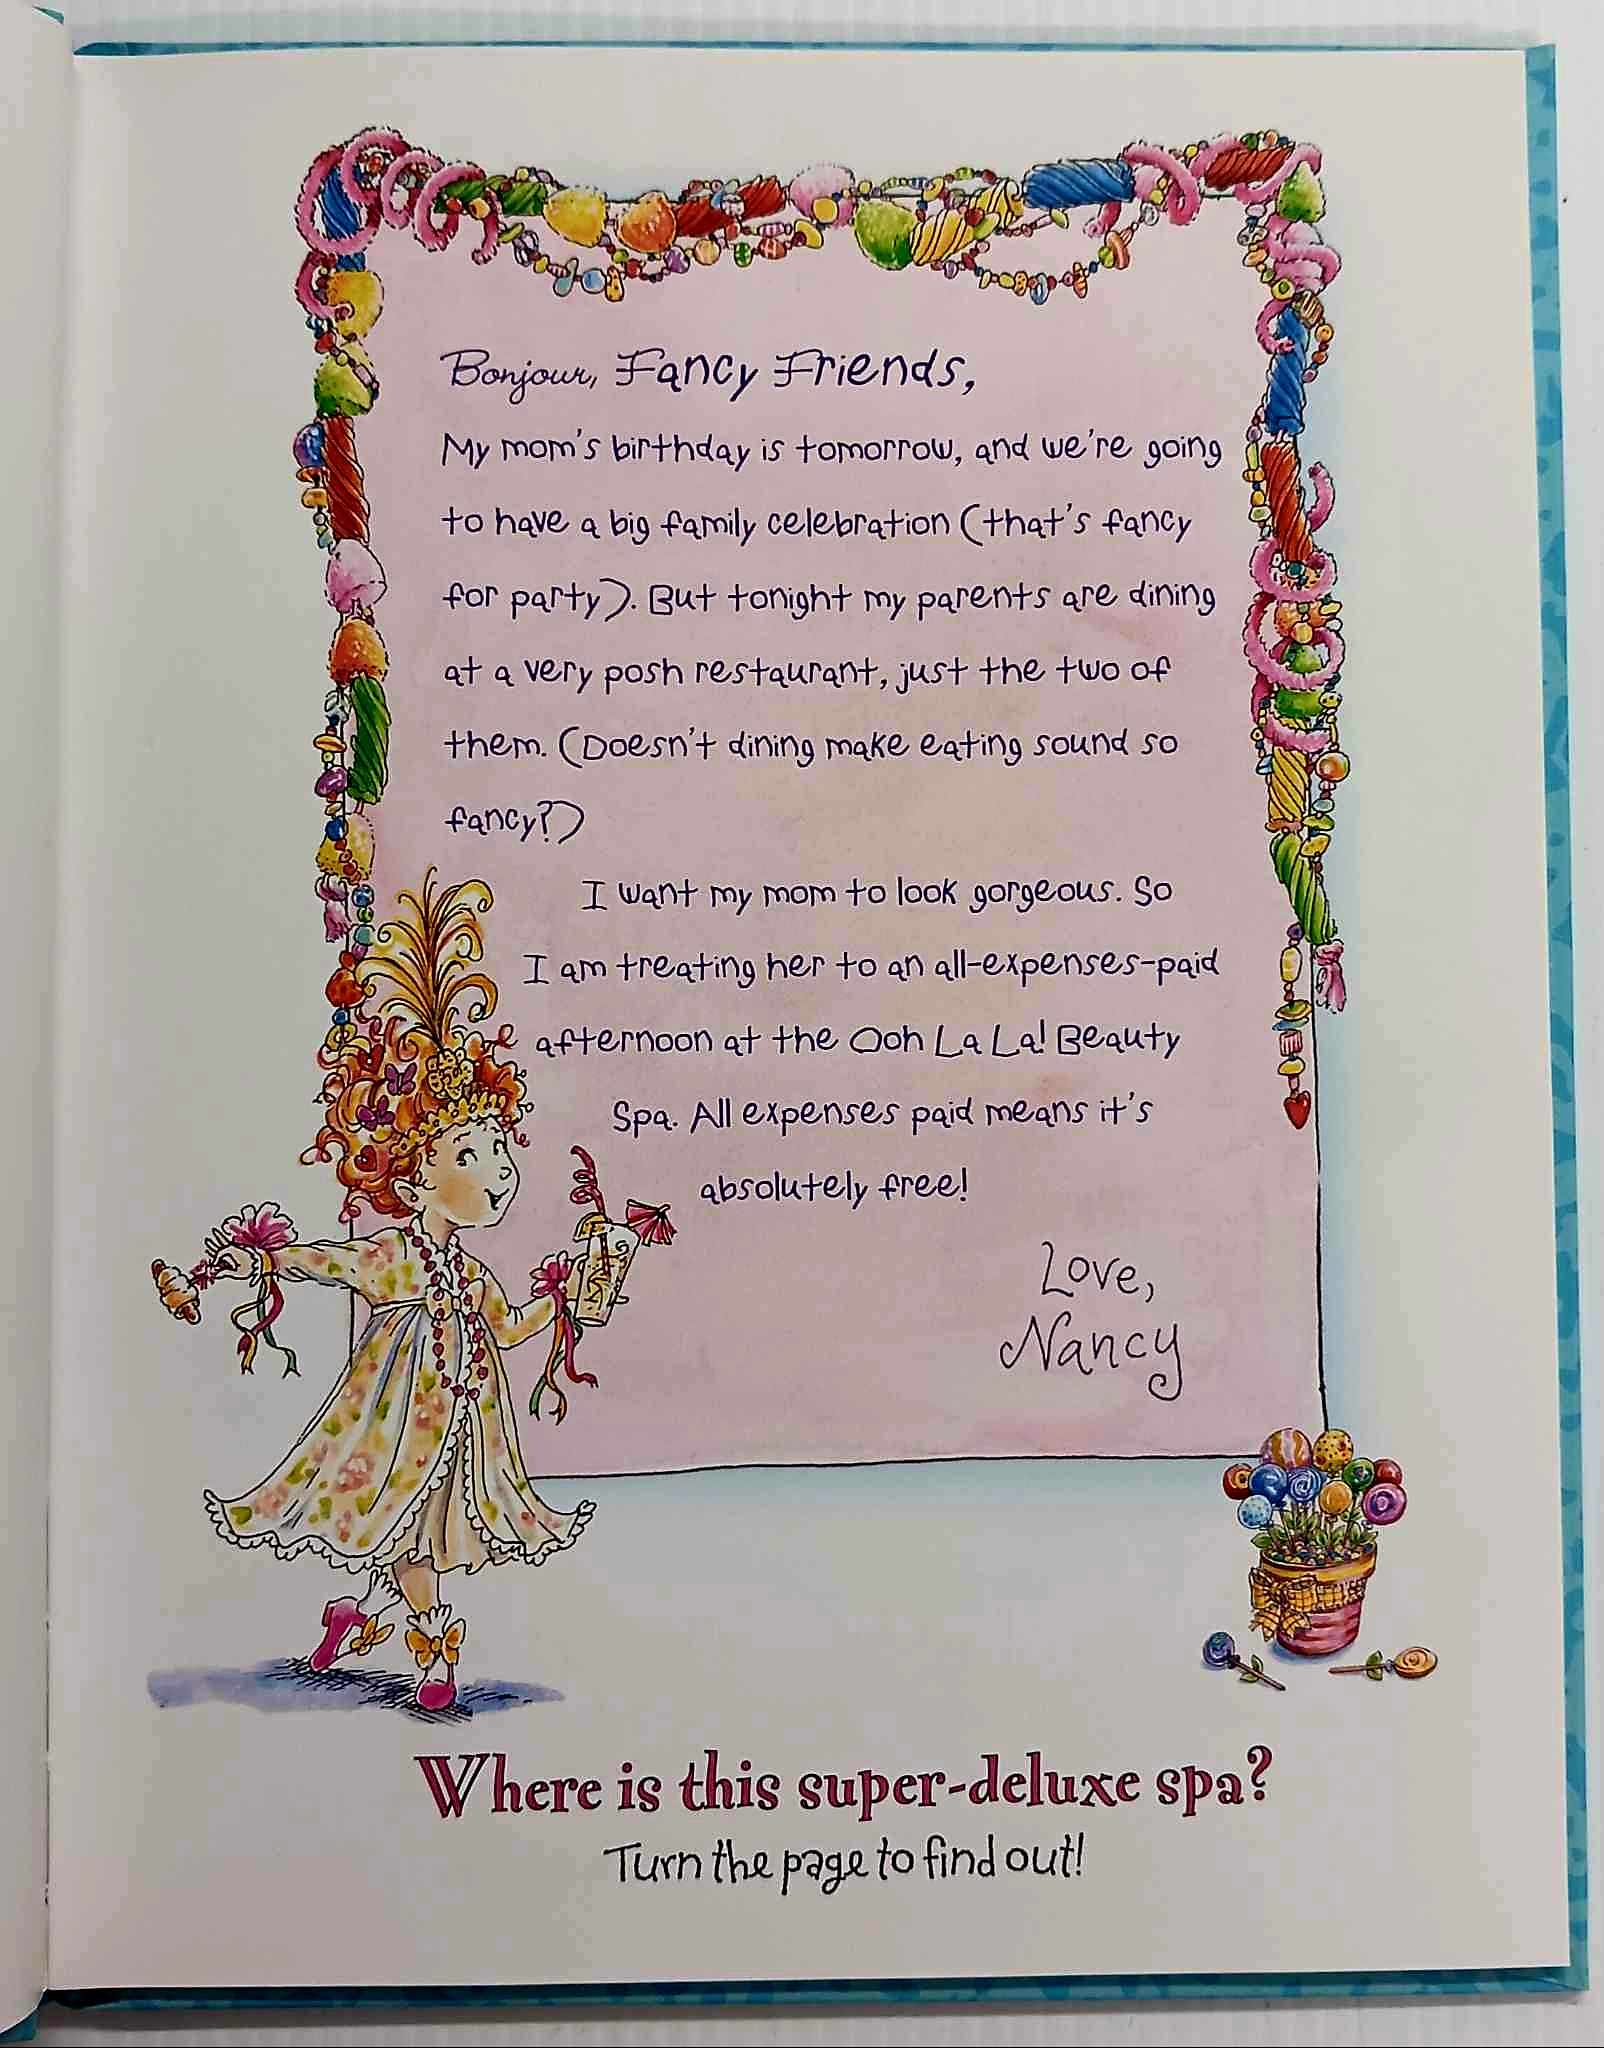 Bonjour, Fancy Friends,
My mom's birthday is tomorrow, and we're going
to have a big family celebration (that's fancy
for party). But tonight my parents are dining
at a very posh restaurant, just the two of
them. (Doesn't dining make eating sound so
fancy?)
I want my mom to look gorgeous. So
I am treating her to an all-expenses-paid
afternoon at the Ooh La La! Beauty
Spa. All expenses paid means it's
absolutely free!
Love,
Nancy
Where is this super-deluxe spa?
Turn the page to find out!